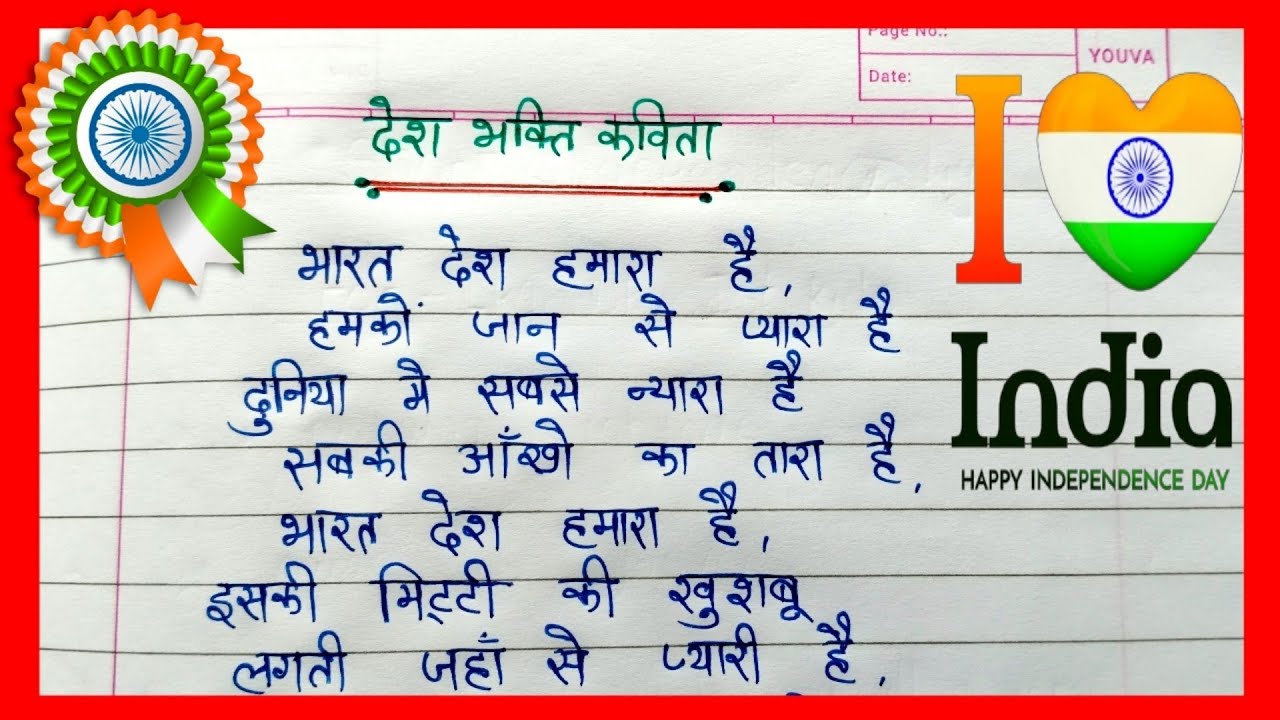 Page No.:
YOUVA
Date:
देश भक्ति कविता
भारत देश हमारा है,
हमकों जान से प्यारा है
दुनिया मे सबसे न्यारा है
सबकी आँखो का तारा है,
भारत देश हमारा है,
इसकी मिट्टी की खुशबू
लगती जहाँ से प्यारी है,
I
India
HAPPY INDEPENDENCE DAY